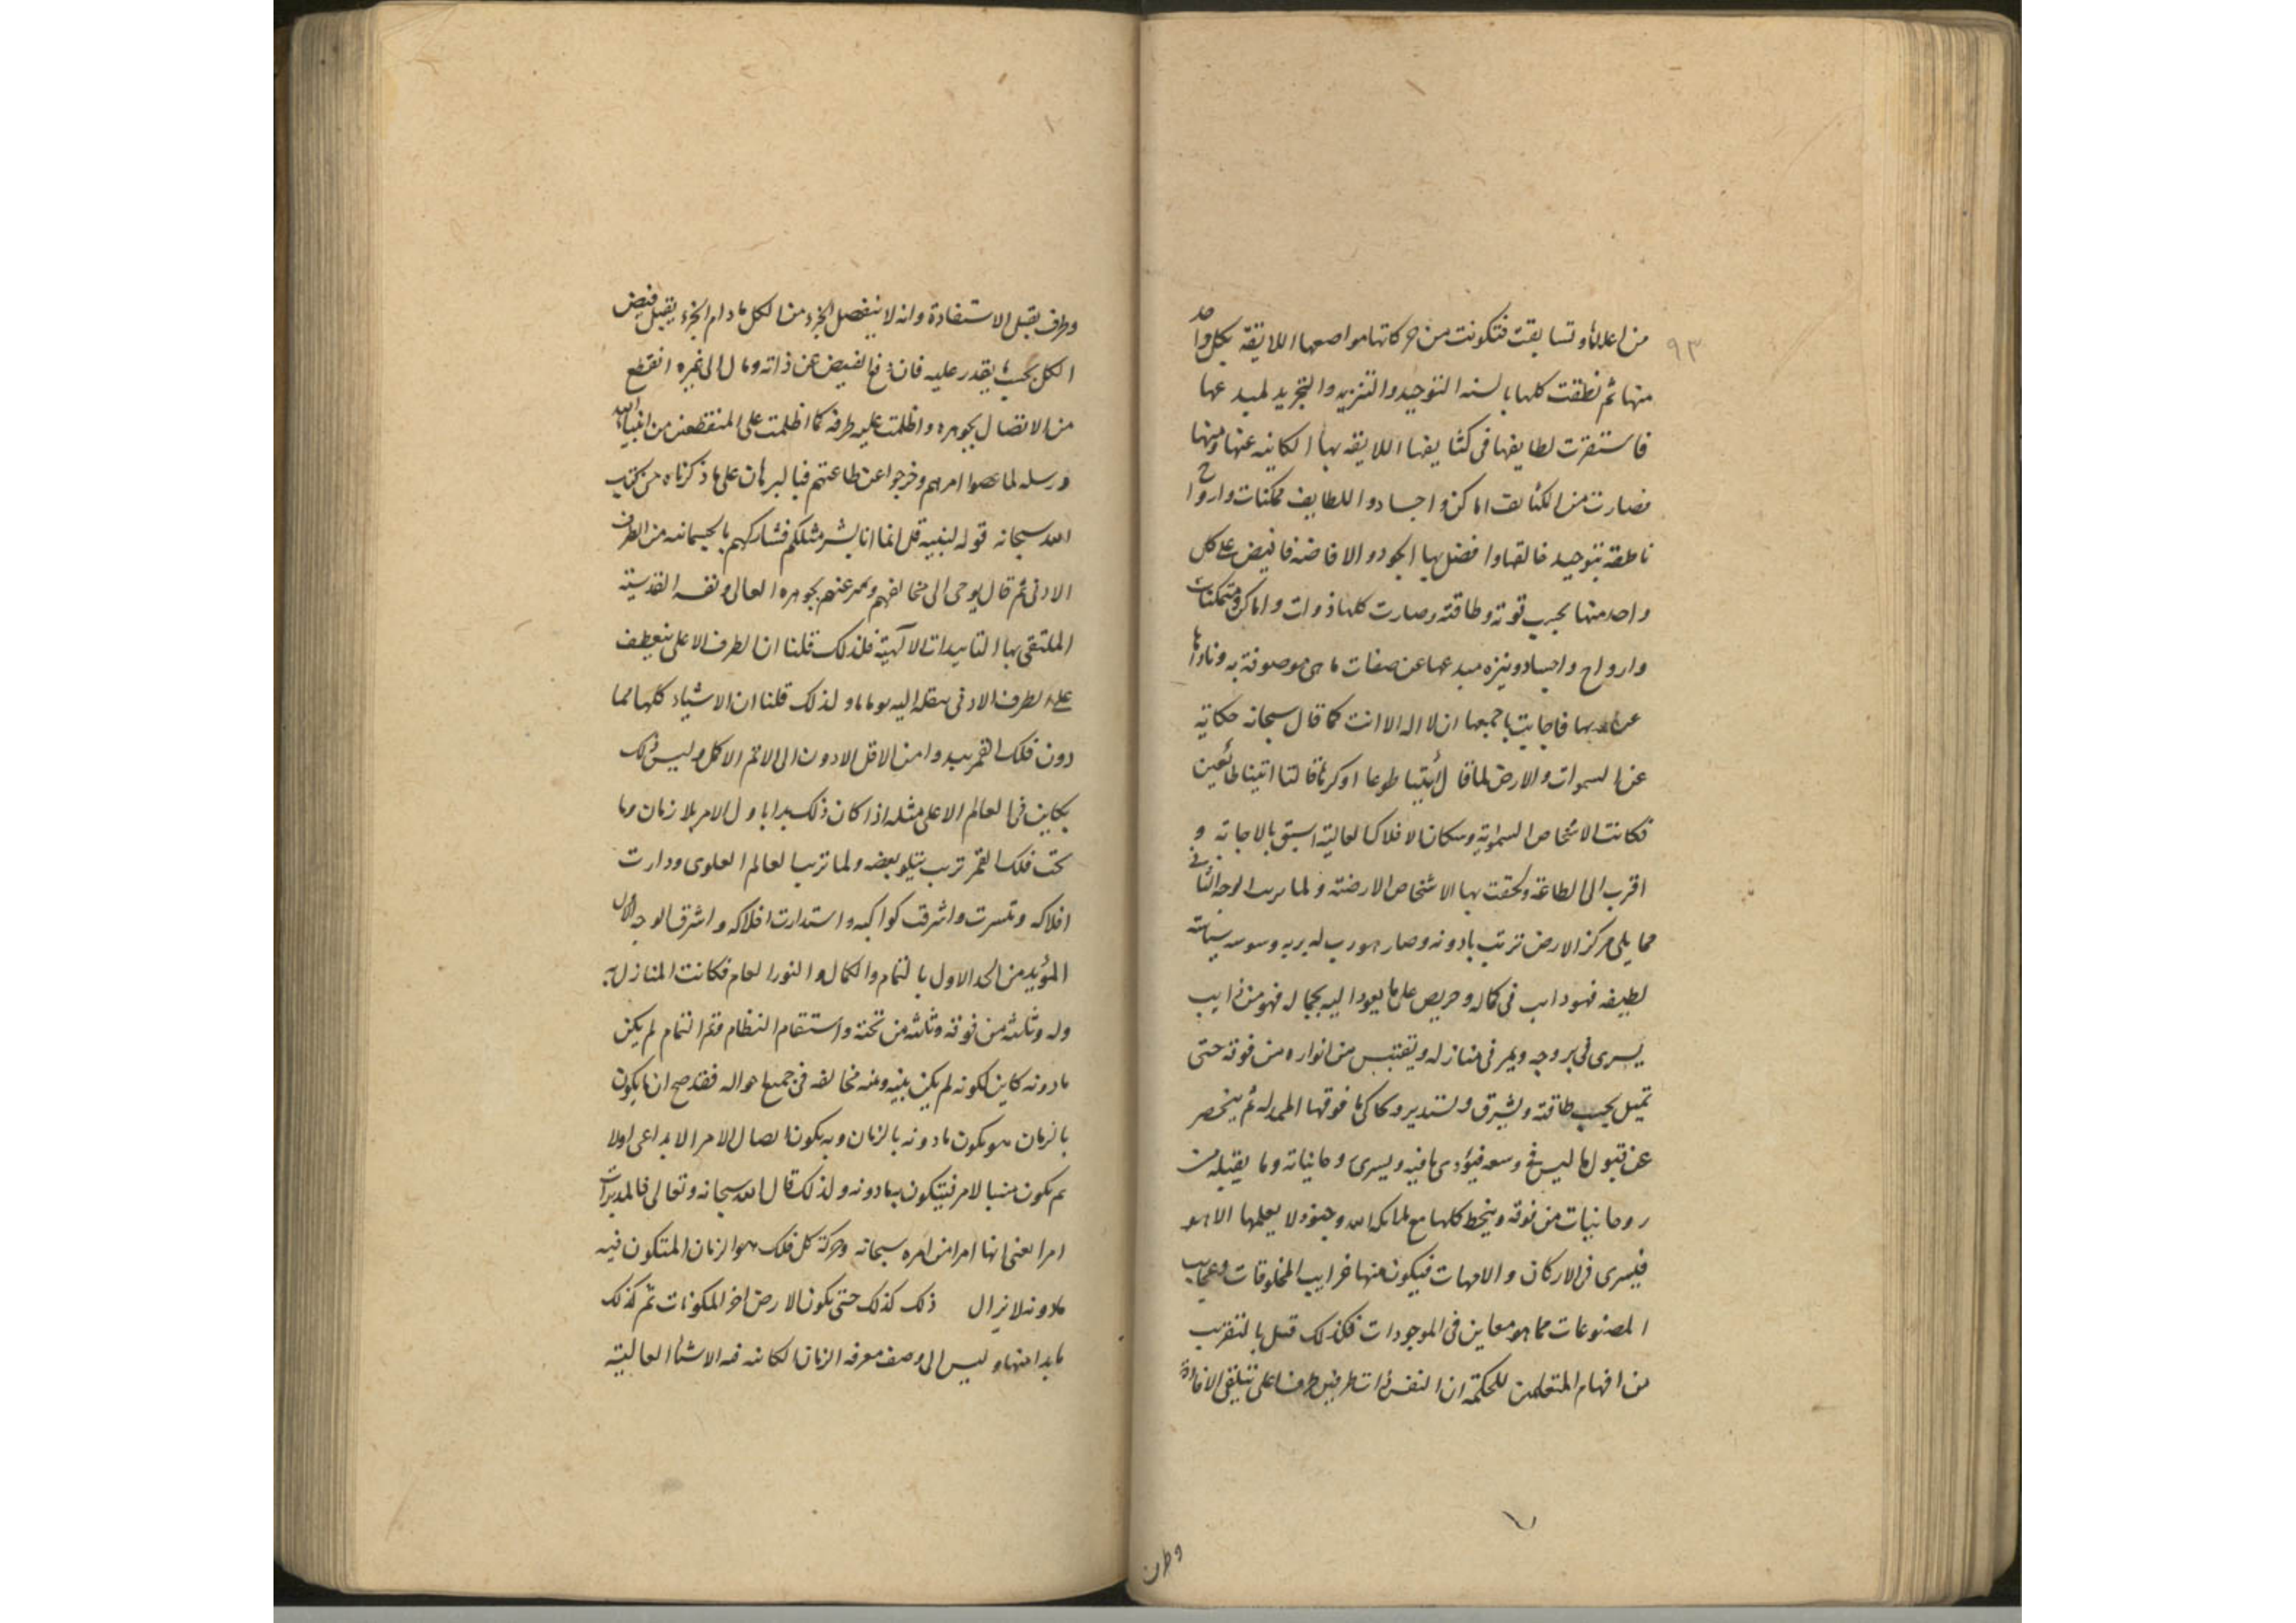 ٩٣
من اعلاها وتسابقت فتكونت من حركاتها مواضعها اللايقة بكل واحد
منها ثم نطقت كلها بالسنة التوحيد والتنزيه والتجريد لمبدعها
فاستقرت لطايفها فى كثايفها اللايقه بها الكاينه عنها ومنها
فصارت من الكثايف اماكن واجساد واللطايف ممكنات وارواح
ناطقة بتوحيد خالقها وافضل بها الجود والافاضة فافيض على كل
واحد منها بحسب قوته وطاقته وصارت كلها ذوات واماكن ومتمكنات
وارواح واجساد وينزه مبدعها عن صفات ما هى موصوفة به وناداها
بها فاجابت باجمعها ان لا اله الا انت كما قال سبحانه حكاية
عن السموات والارض لما قال ائتيا طوعا او كرها قالتا اتينا طائعين
فكانت الاشخاص السموية وسكان الافلاك العالية اسبق بالاجابة و
اقرب الى الطاعة ولحقت بها الاشخاص الارضية ولما الوجه الثانى
مما يلى مركز الارض ترتب بادونه وصار
لطيفه فهو داب فى كماله وحريص على ما يعود اليه بجماله فهو من ذايب
يسرى فى بروجه ويمر فى منازله ويقتبس من انواره من فوقه حتى
تميل بحسب طاقته ويشرق ويستدير وحاكى ما فوقها ثم ينحصر
عن قبول ما ليس فى وسعه فيؤدى ما فيه ويسرى وحانياته وما يقبله من
روحانيات من فوقه وينحط كلها مع ملائكة الله وجنود لا يعلمها الا هو
فيسرى فى الاركان والامهات فيكون منها غرايب المخلوقات وعجايب
المصنوعات مما هو معاين فى الموجودات فكذلك قيل بالتقريب
من افهام المتعلمين للحكمة ان النفس ذات طرفين طرف اعلى تتلقى الافادة
وطرف
وطرف يقبل الاستفادة وانه لا ينفصل الجزء من الكل ما دام الجزء يقبل فيض
الكل بحيث يقدر عليه فان الفيض عن ذاته ومال الى غيره انقطع
من الاتصال بجوهره واظلمت عليه طرفه كما اظلمت على المنقطعين من انبياء الله
ورسله لما عصوا امرهم وخرجوا عن طاعتهم فبالبرهان على ما ذكرناه من كتاب
الله سبحانه قوله لنبيه قل انما انا بشر مثلكم فشاركهم بالجسمانيه من الطرف
الادنى ثم قال يوحى الى فخالفهم عنهم بجوهره العالى ونفسه القدسية
الملتقى بها التاييدات الآلهية فلذلك قلنا ان الطرف الاعلى ينعطف
على الطرف الادنى اليه ولذلك قلنا ان الاشياء كلها مما
دون فلك القمر يبدوا من الاقل الادون الى الاتم الاكمل وليس ذلك
بكاين فى العالم الاعلى مثله اذا كان ذلك بدا باول الامر بلا زمان وما
تحت فلك القمر ترتب يتلو بعضه ولما ترتب العالم العلوى ودارت
افلاكه واشرقت كواكبه واستدارت افلاكه واشرق الوجه الاول
المؤيد من الحد الاول بالتمام والكمال والنور العام فكانت المنازل
وله وثلثة من فوقه وثلثة من تحته واستقام النظام وتم التمام لم يكن
مادونه كاين لكونه لم يكن بينه وبينه مخالفه فى جميع احواله فقد صح ان يكون
بالزمان هو يكون مادونه بالزمان وبه يكون اتصال الامر الابداعى اولا
ثم يكون بالامر فيتكون به مادونه ولذلك قال الله سبحانه وتعالى فالمدبرات
امرا يعنى انها امرا من امره سبحانه وحركة كل فلك هو الزمان المتكون فيه
مادونه لا يزال ذلك كذلك حتى يكون الارض اخر المكونات ثم كذلك
ما بدا منها وليس الى وصف معرفه الزمان الكاينه فيه الاشيا العالية